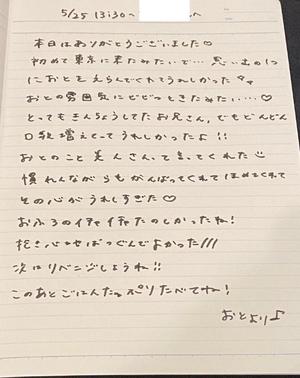 5/25 13:30~ へ
本日はありがとうございました♡
初めて東京に来たみたいで…思い出の1つ
におとをえらんでくれてうれしかった
おとの雰囲気にビビッときたみたい…♡
とってもきんちょうしてたお兄さん、でもどんどん
口数増えてってうれしかったよ!!
おとのこと美人さんって言ってくれた
慣れんながらもがんばってくれてほめてくれて
その心がうれしすぎた♡
おふろのイチャイチャたのしかったね!
抱き心地ばつぐんでよかった///
次はリベンジしようね!!
このあとごはんたっぷりたべてね!
おとより♪